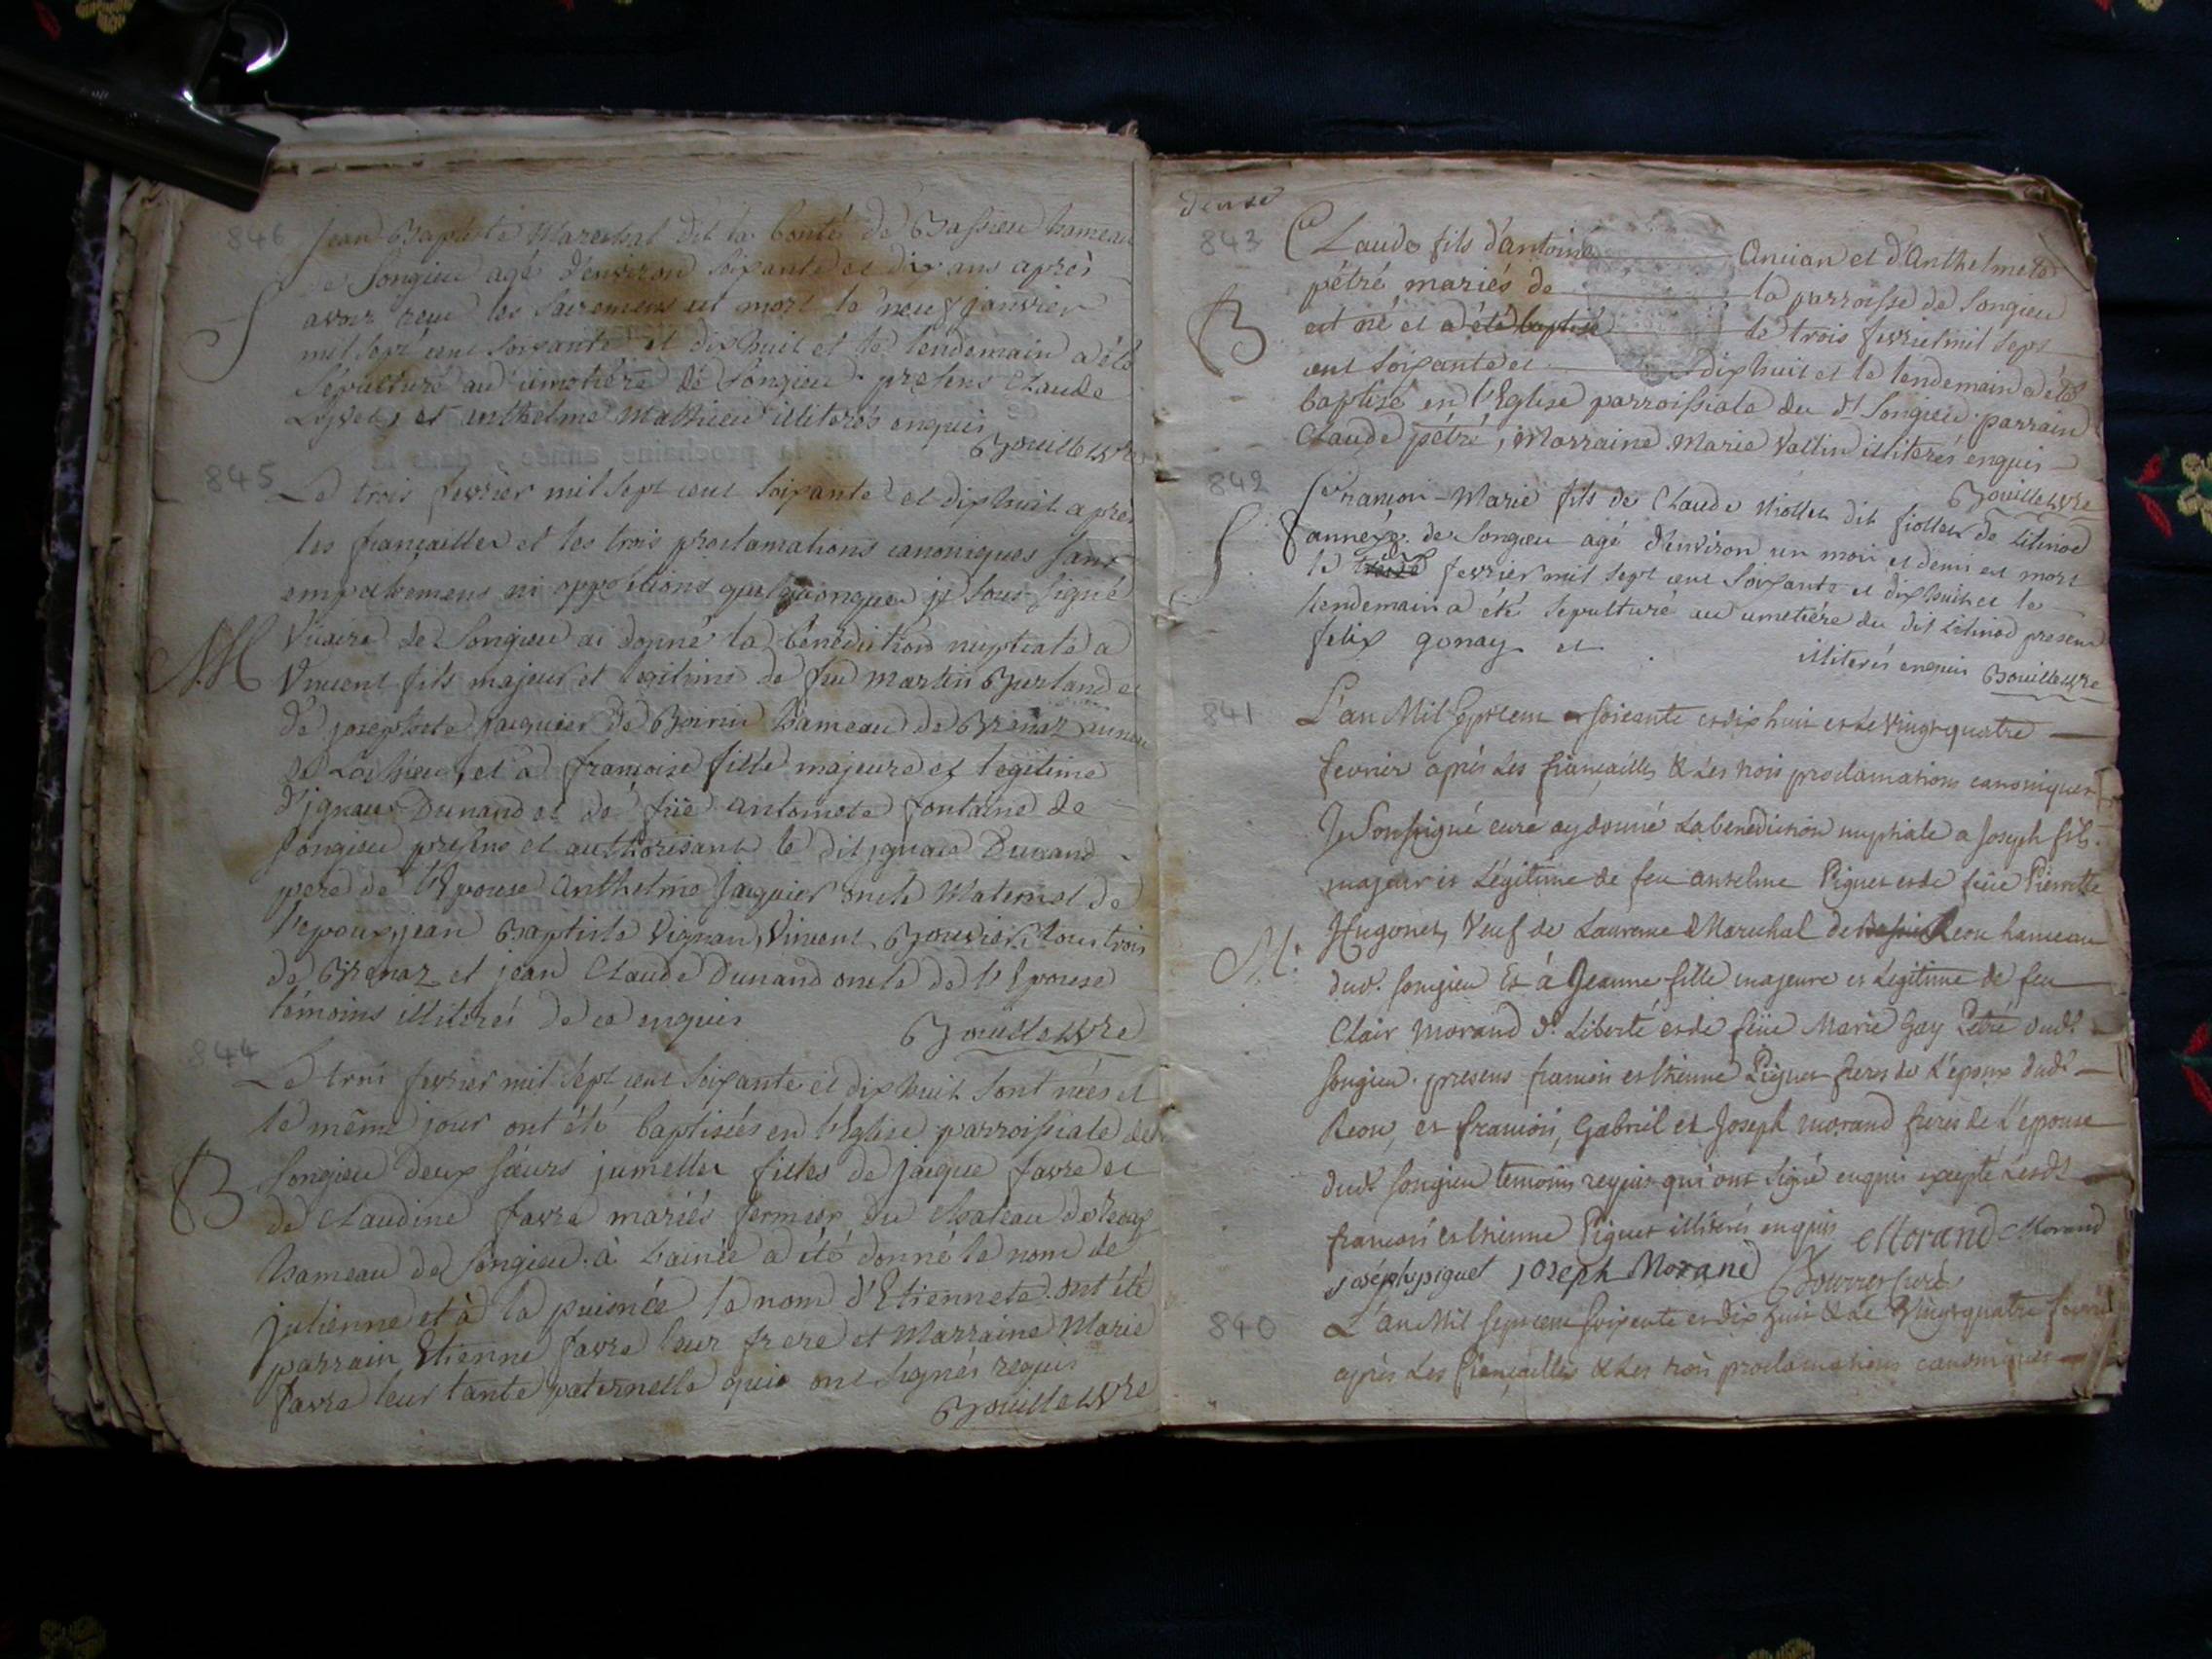 846 Jean Baptiste Marechal dit la bonté de Bassieu hameau
de Songieu agé d'environ soixante et dix ans après
avoir reçu les sacremens est mort le neuf janvier
mil sept cent soixante et dix huit et le lendemain a été
S
sépulturé au cimetière de Songieu. presens Claude
et anthelme Mathieu illiterés enquis
Bouillevre
845 Le trois fevrier mil sept cent soixante et dix huit après
les fiançailles et les trois proclamations canoniques sans
empechemens ni oppositions quelquonques je sous-signé
Vicaire de Songieu ai donné la bénédiction nuptiale a
M
Vincent fils majeur et legitime de feu martin Burland et
de josephete jacquier de Boirin hameau de Brenaz annexe
de Lochieu, et a françoise fille majeure et legitime
d'ignace Dunand et de füe antoinete fontaine de
Songieu presens et authorisant le dit ignace Dunand
pere de l'Epouse Anthelme Jacquier oncle Maternel de
l'epoux, jean Baptiste Vignan, Vincent Bouvier tous trois
de Brenaz et jean Claude Dunand oncle de l'Epouse
témoins illiterés de ce enquis
Bouillevre
844
Le trois fevrier mil sept cent soixante et dix huit sont nées et
le même jour ont été baptisées en l'Eglise parroissiale de
B
Songieu deux sœurs jumelles filles de jacque favre et
de Claudine favre mariés fermiers du chateau de
hameau de Songieu. à l'ainée a été donné le nom de
julienne et à la puisnée le nom d'Etiennete. ont été
parrain Etienne favre leur frere et Marraine Marie
favre leur tante paternelle qui ont signés requis
Bouillevre
843 Claude fils d'antoine Ancian et d'Anthelmete
pétré mariés de la parroisse de Songieu
B
est né et a été baptisé le trois fevrier mil sept
cent soixante et dix huit et le lendemain a été
baptisé en l'Eglise parroissiale du dt Songieu. parrain
Claude pétré, Marraine Marie Vallin illiterés enquis
Bouillevre
842 François-Marie fils de Claude Miollet dit fiollet de Lilinod
annexe de Songieu agé d'environ un mois et demi est mort
S
le fevrier mil sept cent soixante et dix huit et le
lendemain a été sepulturé au cimetière du dit Lilinod presens
felix gonay et illiterés enquis Bouillevre
841 L'an Mil Sept cent et soixante et dix huit et Le vingt quatre
fevrier après Les fiançailles & Les trois proclamations canoniques
Je Soussigné curé ay donné La benediction nuptiale a Joseph fils
majeur et Légitime de feu anselme Piguet et de füe Pierrette
M.
Hugonet, Veuf de Laurence Marechal de Bassieu Reou hameau
dudt. Songieu Et à Jeanne fille majeure et Légitime de feu
Clair Morand dt. Liberté et de füe Marie Gay Pétré dudt
Songieu. presens françois et Etienne Piguet freres de L'époux dudt
Reou, et françois, Gabriel et Joseph Morand freres de L'épouse
dudt Songieu temoins requis qui ont signé enquis excepté Lesdt
françois et Etienne Piguet illiterés enquis Morand Morand
joseph piguet joseph Morand
840 L'an Mil Sept cent soixante et dix huit & Le Vingt quatre fevrier
après Les fiançailles & Les trois proclamations canoniques